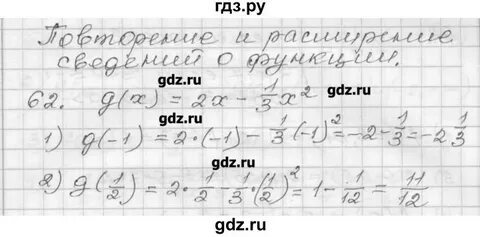 гдз.ру
Повторение и расширение
сведений о функции.
gdz.ru gdz.ru
62. g(x) = 2x - 1/3 x²
gdz.ru gdz.ru
1) g(-1) = 2·(-1) - 1/3 (-1)² = -2 - 1/3 = -2 1/3
gdz.ru gdz.ru
2) g(1/2) = 2·1/2 - 1/3·(1/2)² = 1 - 1/12 = 11/12
gdz.ru gdz.ru